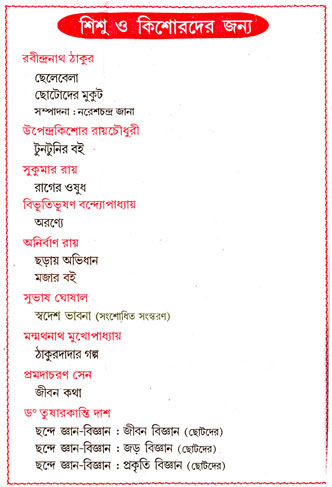 শিশু ও কিশোরদের জন্য
রবীন্দ্রনাথ ঠাকুর
ছেলেবেলা
ছোটোদের মুকুট
সম্পাদনা : নরেশচন্দ্র জানা
উপেন্দ্রকিশোর রায়চৌধুরী
টুনটুনির বই
সুকুমার রায়
রাগের ওষুধ
বিভূতিভূষণ বন্দ্যোপাধ্যায়
অরণ্যে
অনির্বাণ রায়
ছড়ায় অভিধান
মজার বই
সুভাষ ঘোষাল
স্বদেশ ভাবনা (সংশোধিত সংস্করণ)
মন্মথনাথ মুখোপাধ্যায়
ঠাকুরদাদার গল্প
প্রমদাচরণ সেন
জীবন কথা
ড° তুষারকান্তি দাশ
ছন্দে জ্ঞান-বিজ্ঞান : জীবন বিজ্ঞান (ছোটদের)
ছন্দে জ্ঞান-বিজ্ঞান : জড় বিজ্ঞান (ছোটদের)
ছন্দে জ্ঞান-বিজ্ঞান : প্রকৃতি বিজ্ঞান (ছোটদের)